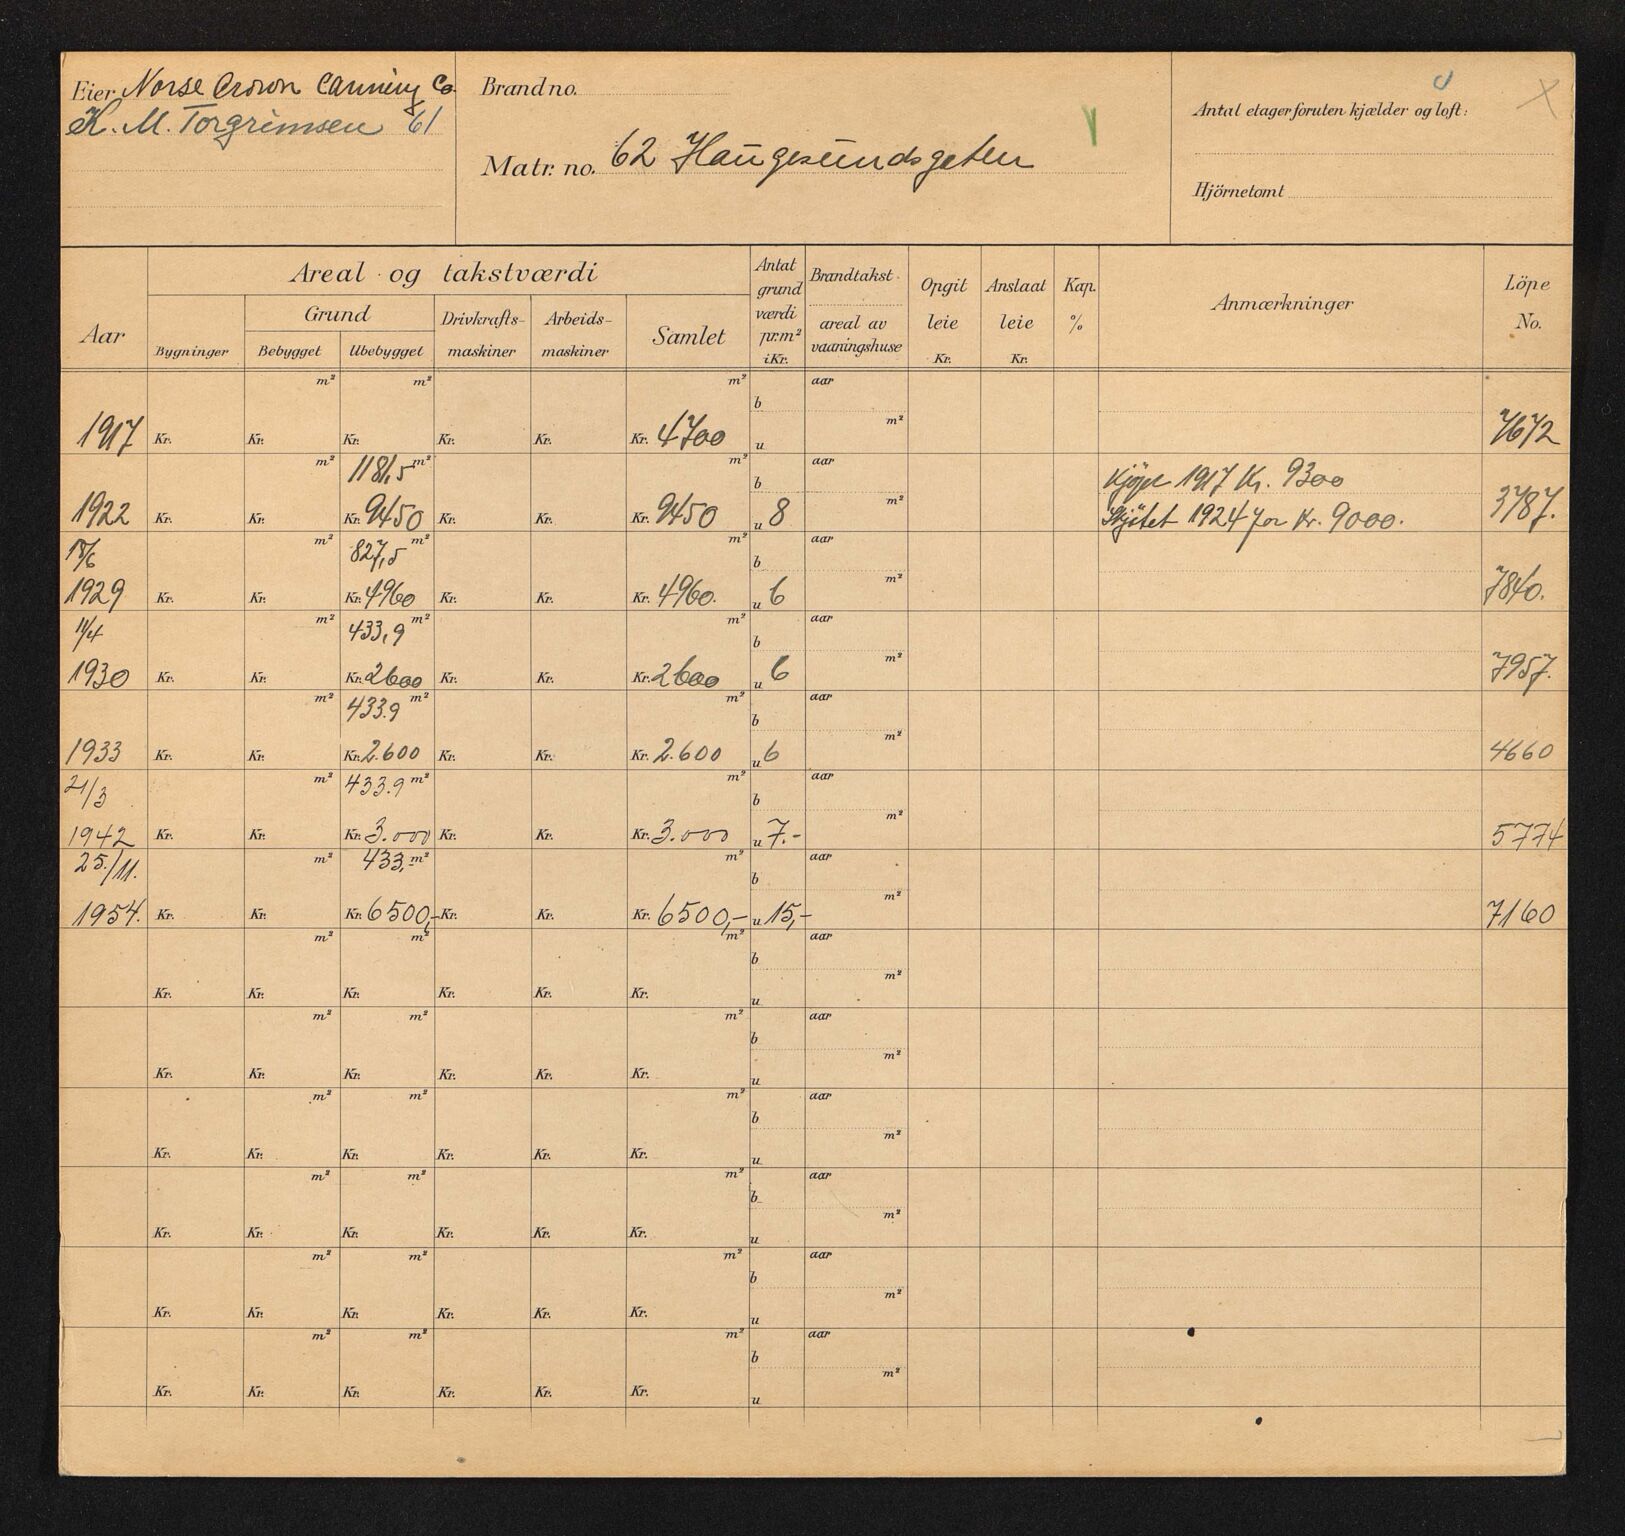 Eier Norse Crown Canning Co.
K. M. Torgrimsen 61
Brand no.
Matr. no. 62 Haugesundsgaten
Antal etager foruten kjælder og loft:
Hjörnetomt
Aar
Areal og takstværdi
Bygninger
Grund
Bebygget Ubebygget
Drivkrafts-maskiner
Arbeids-maskiner
Samlet
Antat grund værdi pr. m² i Kr.
Brandtakst
areal av vaaningshuse
Opgit leie Kr.
Anslaat leie Kr.
Kap. %
Anmærkninger
Löpe No.
m² m² m² b aar
1917 Kr. Kr. Kr. Kr. Kr. Kr. 4700 u m² 7672
m² 1181,5 m² m² b aar Kjøpt 1917 Kr. 9300
1922 Kr. Kr. Kr. 9450 Kr. Kr. Kr. 9450 u 8 m² Skjötet 1924 for Kr. 9000. 3787.
18/6 m² 827,5 m² m² b aar
1929 Kr. Kr. Kr. 4960 Kr. Kr. Kr. 4960. u 6 m² 7840.
11/4 m² 433,9 m² m² b aar
1930 Kr. Kr. Kr. 2600 Kr. Kr. Kr. 2600 u 6 m² 7957.
m² 433.9 m² m² b aar
1933 Kr. Kr. Kr. 2.600 Kr. Kr. Kr. 2.600 u 6 m² 4660
21/3 m² 433.9 m² m² b aar
1942 Kr. Kr. Kr. 3.000 Kr. Kr. Kr. 3.000 u 7.- m² 5774
25./11. m² 433,- m² m² b aar
1954. Kr. Kr. Kr. 6500,- Kr. Kr. Kr. 6500,- u 15,- m² 7160
m² m² m² b aar
Kr. Kr. Kr. Kr. Kr. Kr. u m²
m² m² m² b aar
Kr. Kr. Kr. Kr. Kr. Kr. u m²
m² m² m² b aar
Kr. Kr. Kr. Kr. Kr. Kr. u m²
m² m² m² b aar
Kr. Kr. Kr. Kr. Kr. Kr. u m²
m² m² m² b aar
Kr. Kr. Kr. Kr. Kr. Kr. u m²
m² m² m² b aar
Kr. Kr. Kr. Kr. Kr. Kr. u m²